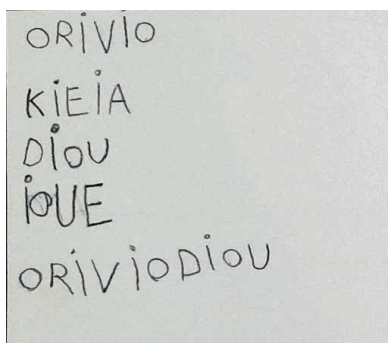 ORiViO
KiEiA
DiOU
iOUE
ORiViODiOU